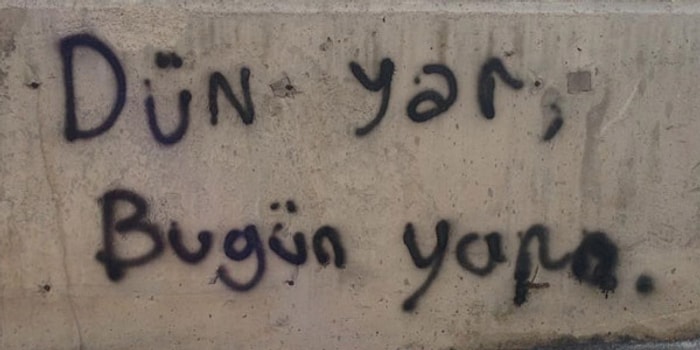 Dün yar,
Bugün yara.